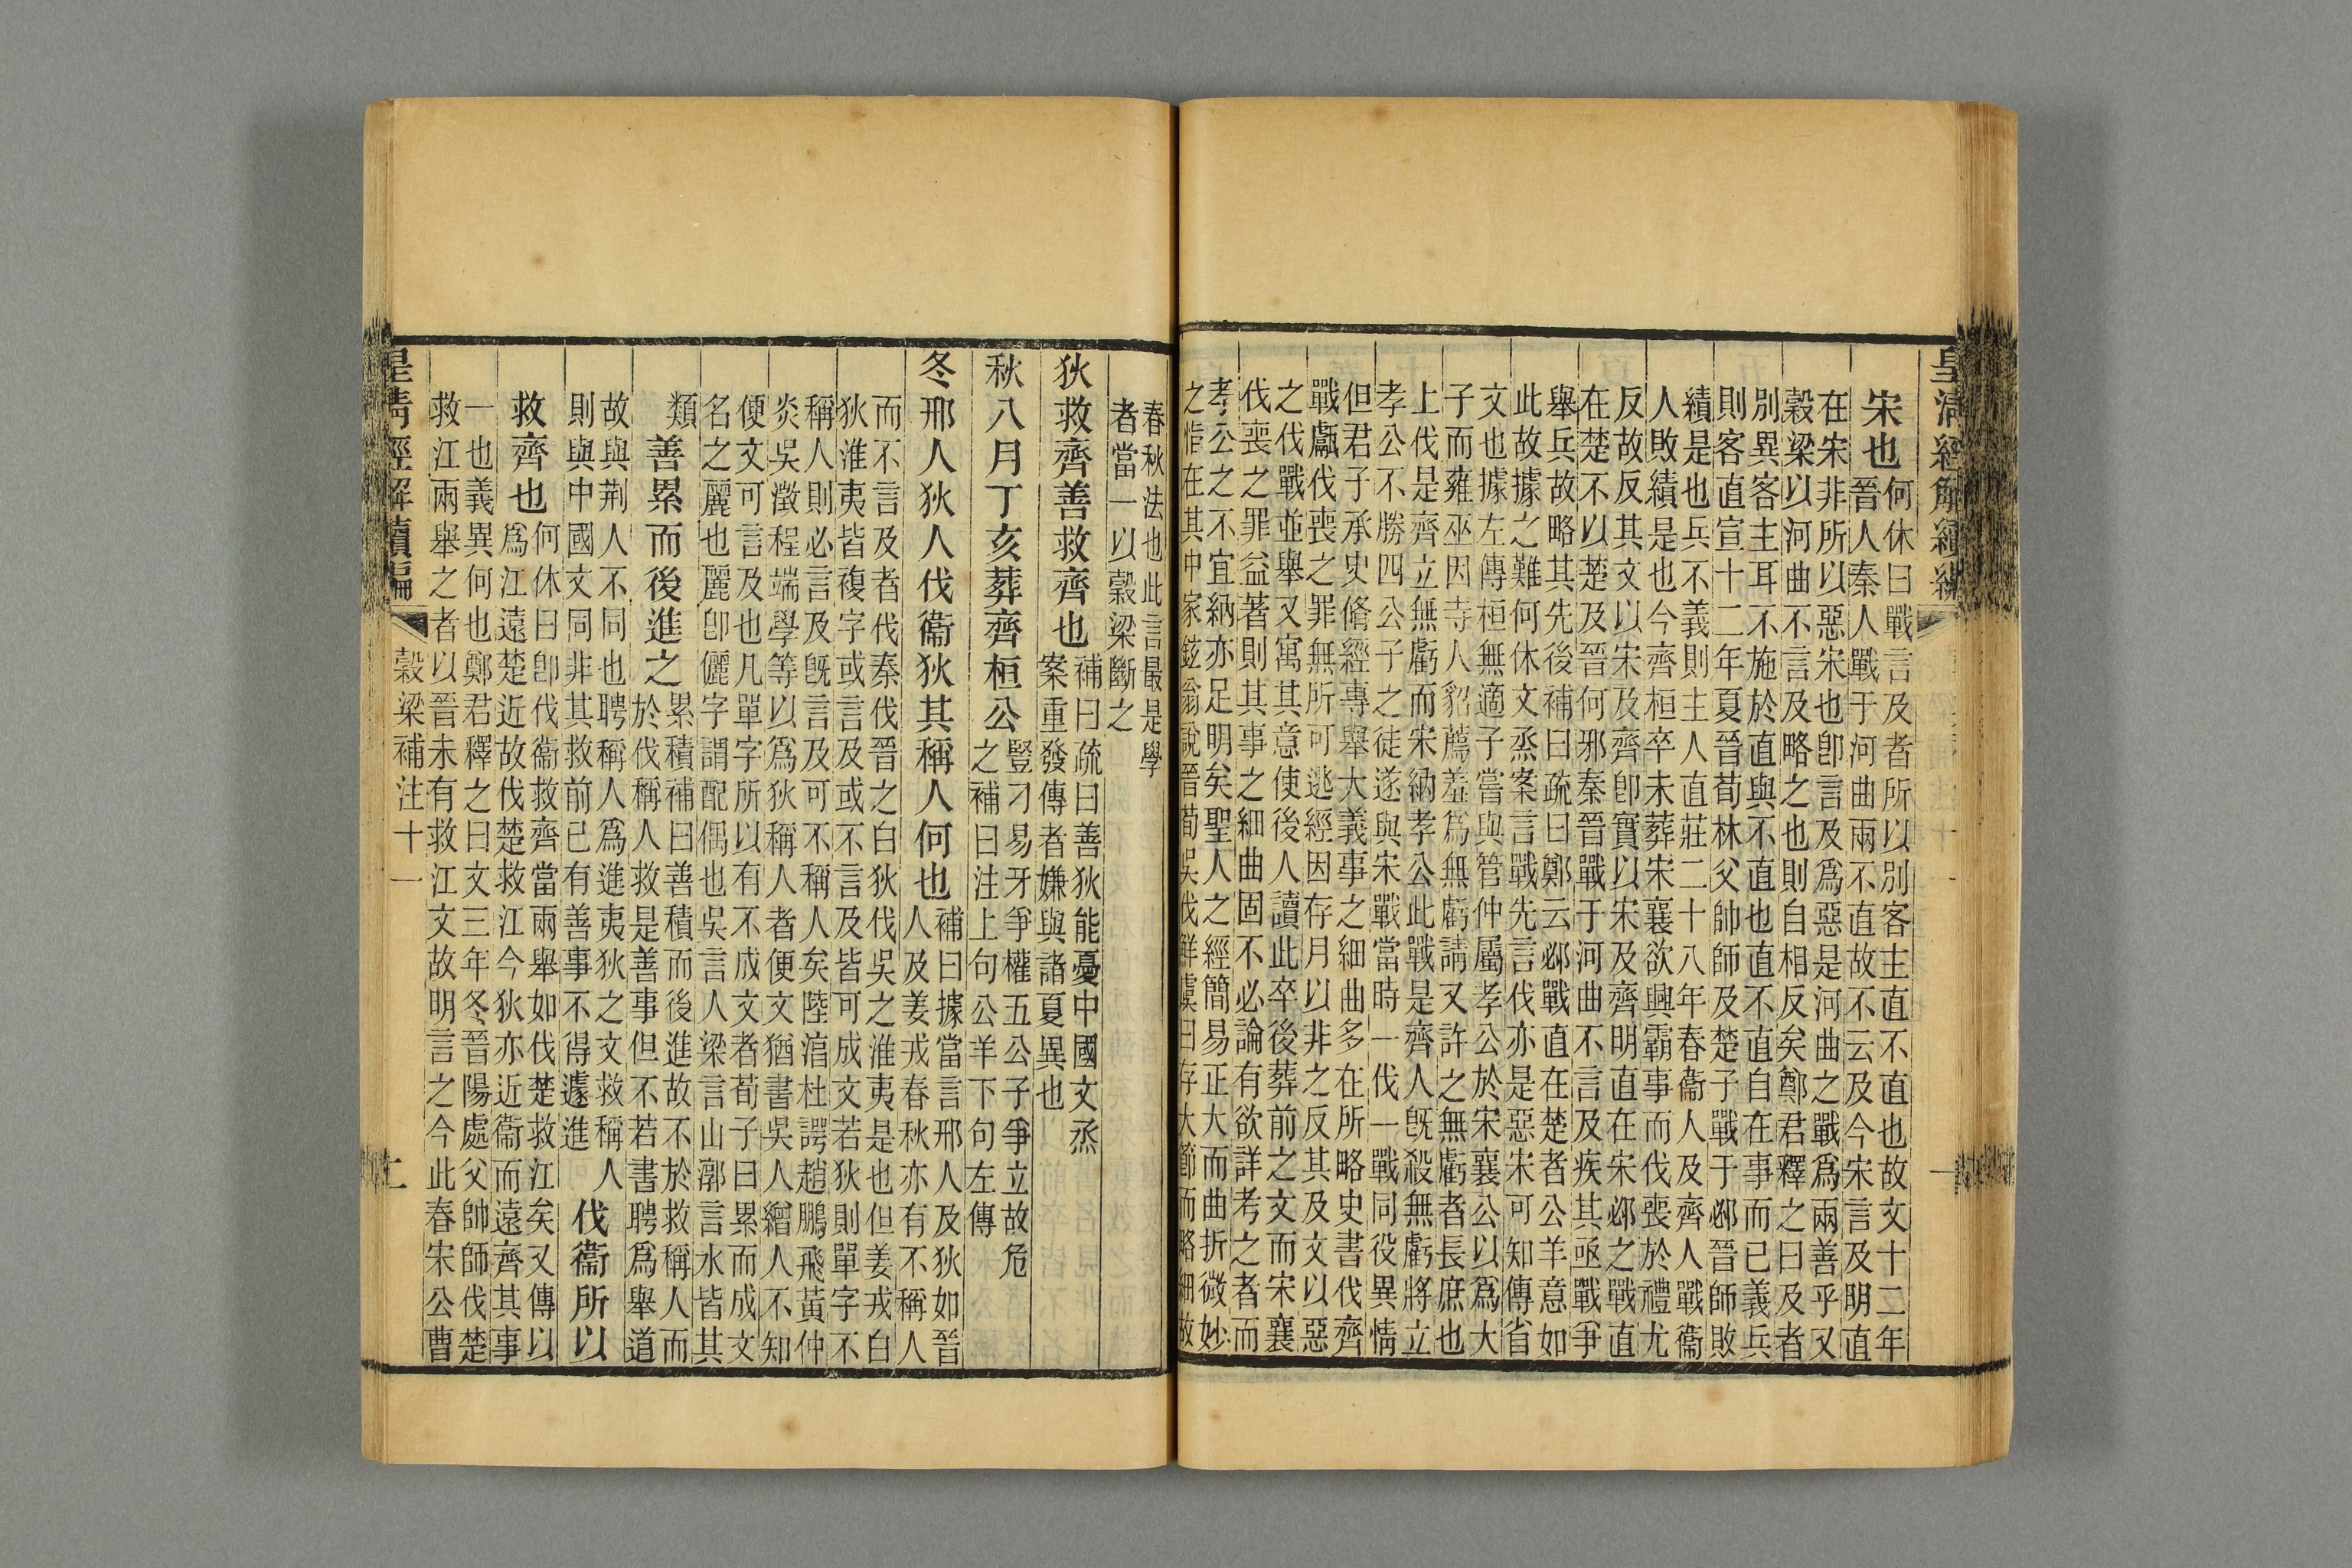 皇清經解續編
宋也
何休曰戰言及者所以別客主直不直也故文十二年
晉人秦人戰于河曲兩不直故不云及今宋言及明直
在宋非所以惡宋也卽言及爲惡是河曲之戰爲兩善乎又
穀梁以河曲不言及略之也則自相反矣鄭君釋之曰及者
別異客主耳不施於直與不直也直不直自在事而已義兵
則客直宣十二年夏晉荀林父帥師及楚子戰于邲晉師敗
績是也兵不義則主人直莊二十八年春衞人及齊人戰衞
人敗績是也今齊桓卒未葬宋襄欲興霸事而伐喪於禮尤
反故反其文以宋及齊卽實以宋及齊明直在宋邲之戰直
在楚不以楚及晉何邪秦晉戰于河曲不言及疾其亟戰爭
舉兵故略其先後補曰疏曰鄭云邲戰直在楚者公羊意如
此故據之難何休文烝案言戰先言伐亦是惡宋可知傳省
文也據左傳桓無適子嘗與管仲屬孝公於宋襄公以爲大
子而雍巫因寺人貂薦羞爲無虧請又許之無虧者長庶也
上伐是齊立無虧而宋納孝公此戰是齊人旣殺無虧將立
孝公不勝四公子之徒遂與宋戰當時一伐一戰同役異情
但君子承史脩經專舉大義事之細曲多在所略史書伐齊
戰甗伐喪之罪無所可逃經因存月以非之反其及文以惡
之伐戰並舉又寓其意使後人讀此卒後葬前之文而宋襄
伐喪之罪益著則其事之細曲固不必論有欲詳考之者而
孝公之不宜納亦足明矣聖人之經簡易正大而曲折微妙
之恉在其中家鉉翁說晉荀吳伐鮮虞曰存大節而略細故
春秋法也此言最是學
者當一以穀梁斷之
狄救齊善救齊也
補曰疏曰善狄能憂中國文烝
案重發傳者嫌與諸夏異也
秋八月丁亥葬齊桓公
豎刁易牙爭權五公子爭立故危
之補曰注上句公羊下句左傳
冬邢人狄人伐衞狄其稱人何也
補曰據當言邢人及狄如晉
人及姜戎春秋亦有不稱人
而不言及者伐秦伐晉之白狄伐吳之淮夷是也但姜戎白
狄淮夷皆複字或言及或不言及皆可成文若狄則單字不
稱人則必言及旣言及可不稱人矣陸淳杜諤趙鵬飛黃仲
炎吳澂程端學等以爲狄稱人者便文猶書吳人繒人不知
便文可言及也凡單字所以有不成文者荀子曰累而成文
名之麗也麗卽儷字謂配偶也吳言人梁言山漷言水皆其
類
善累而後進之
累積補曰善積而後進故不於救稱人而
於伐稱人救是善事但不若書聘爲舉道
故與荆人不同也聘稱人爲進夷狄之文救稱人
則與中國文同非其救前已有善事不得遽進
伐衞所以
救齊也
何休曰卽伐衞救齊當兩舉如伐楚救江矣又傳以
爲江遠楚近故伐楚救江今狄亦近衞而遠齊其事
一也義異何也鄭君釋之曰文三年冬晉陽處父帥師伐楚
救江兩舉之者以晉未有救江文故明言之今此春宋公曹
皇清經解續編
穀梁補注十一